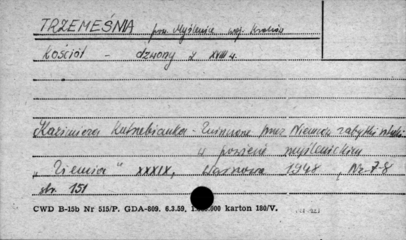 TRZEMEŚNIA pow. Myślenice woj. Kraków
Kościół - dzwony z XVIII w.
Kazimiera Kutrzebianka - Zniszczone przez Niemców zabytki
w powiecie myślenickim
„Ziemia" XXXIX, Warszawa 1948, Nr 7-8
str. 151
CWD B-15b Nr 515/P. GDA-809. 6.3.59, 000 karton 180/V.